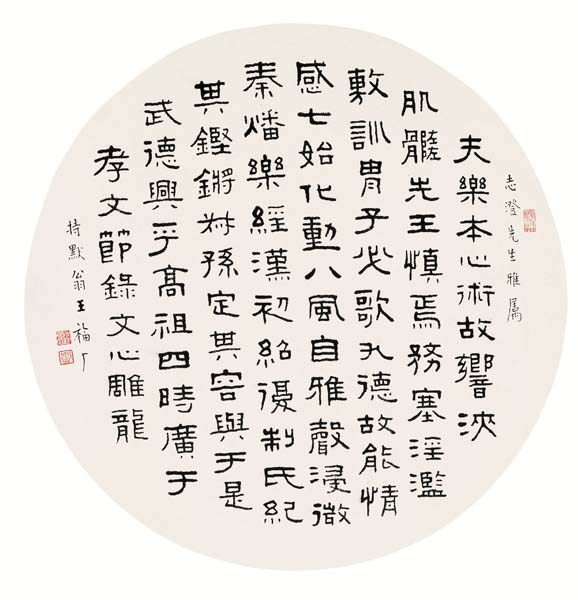 志澄先生雅属
夫樂本心術故響浹
肌髓先王慎焉務塞淫濫
敷訓胄子必歌九德故能情
感七始化動八風自雅聲浸微
秦燔樂經漢初紹復制氏紀
其鏗鏘叔孫定其容與于是
武德興乎高祖四時廣于
孝文節錄文心雕龍
持默翁王福厂